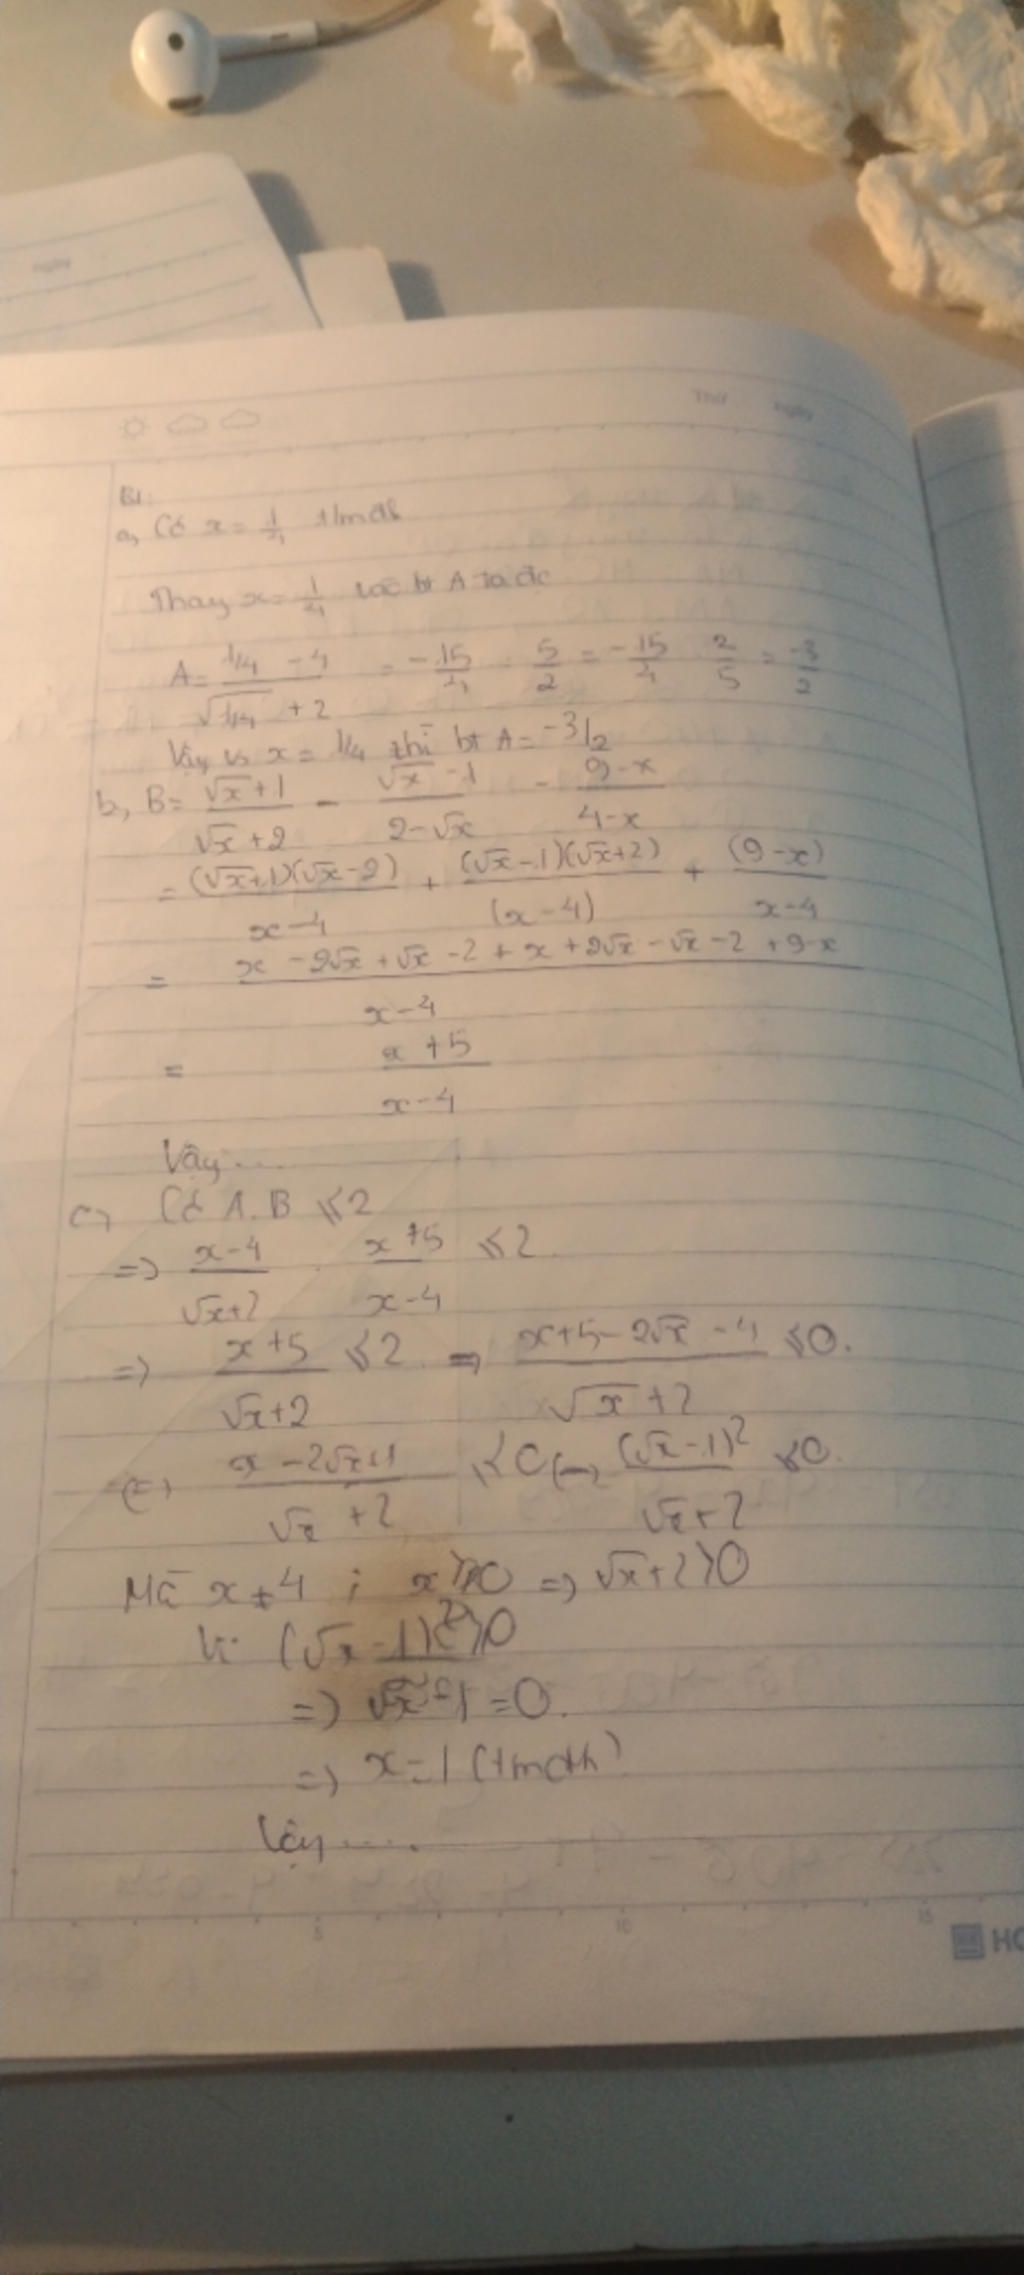 Thứ ngày
ngày
B1:
a, Có x = 1/4 t/m đk
Thay x = 1/4 vào bt A ta đc
A = (1/4 - 4)/(√1/4 + 2) = -15/4 : 5/2 = -15/4 . 2/5 = -3/2
Vậy vs x = 1/4 thì bt A = -3/2
b, B = (√x + 1)/(√x + 2) - (√x - 1)/(2 - √x) - (9 - x)/(4 - x)
= (√x+1)(√x-2)/(x - 4) + (√x-1)(√x+2)/(x - 4) + (9 - x)/(x - 4)
= (x - 2√x + √x - 2 + x + 2√x - √x - 2 + 9 - x)/(x - 4)
= (x + 5)/(x - 4)
Vậy ....
c, Có A.B ⩽ 2
=> (x - 4)/(√x + 2) . (x + 5)/(x - 4) ⩽ 2
=> (x + 5)/(√x + 2) ⩽ 2 => (x + 5 - 2√x - 4)/(√x + 2) ⩽ 0.
(=) (x - 2√x + 1)/(√x + 2) ⩽ 0 (=) (√x - 1)²/(√x + 2) ⩽ 0.
Mà x ≠ 4 ; x ⩾ 0 => √x + 2 > 0
Vì (√x - 1)² ⩾ 0
=> √x - 1 = 0.
=> x = 1 (t/m đk)
Vậy .....
5 10 15
HO